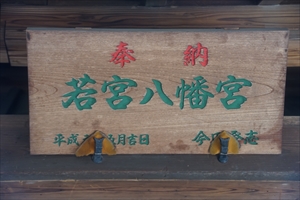 奉納
若宮八幡宮
平成 月吉日 今